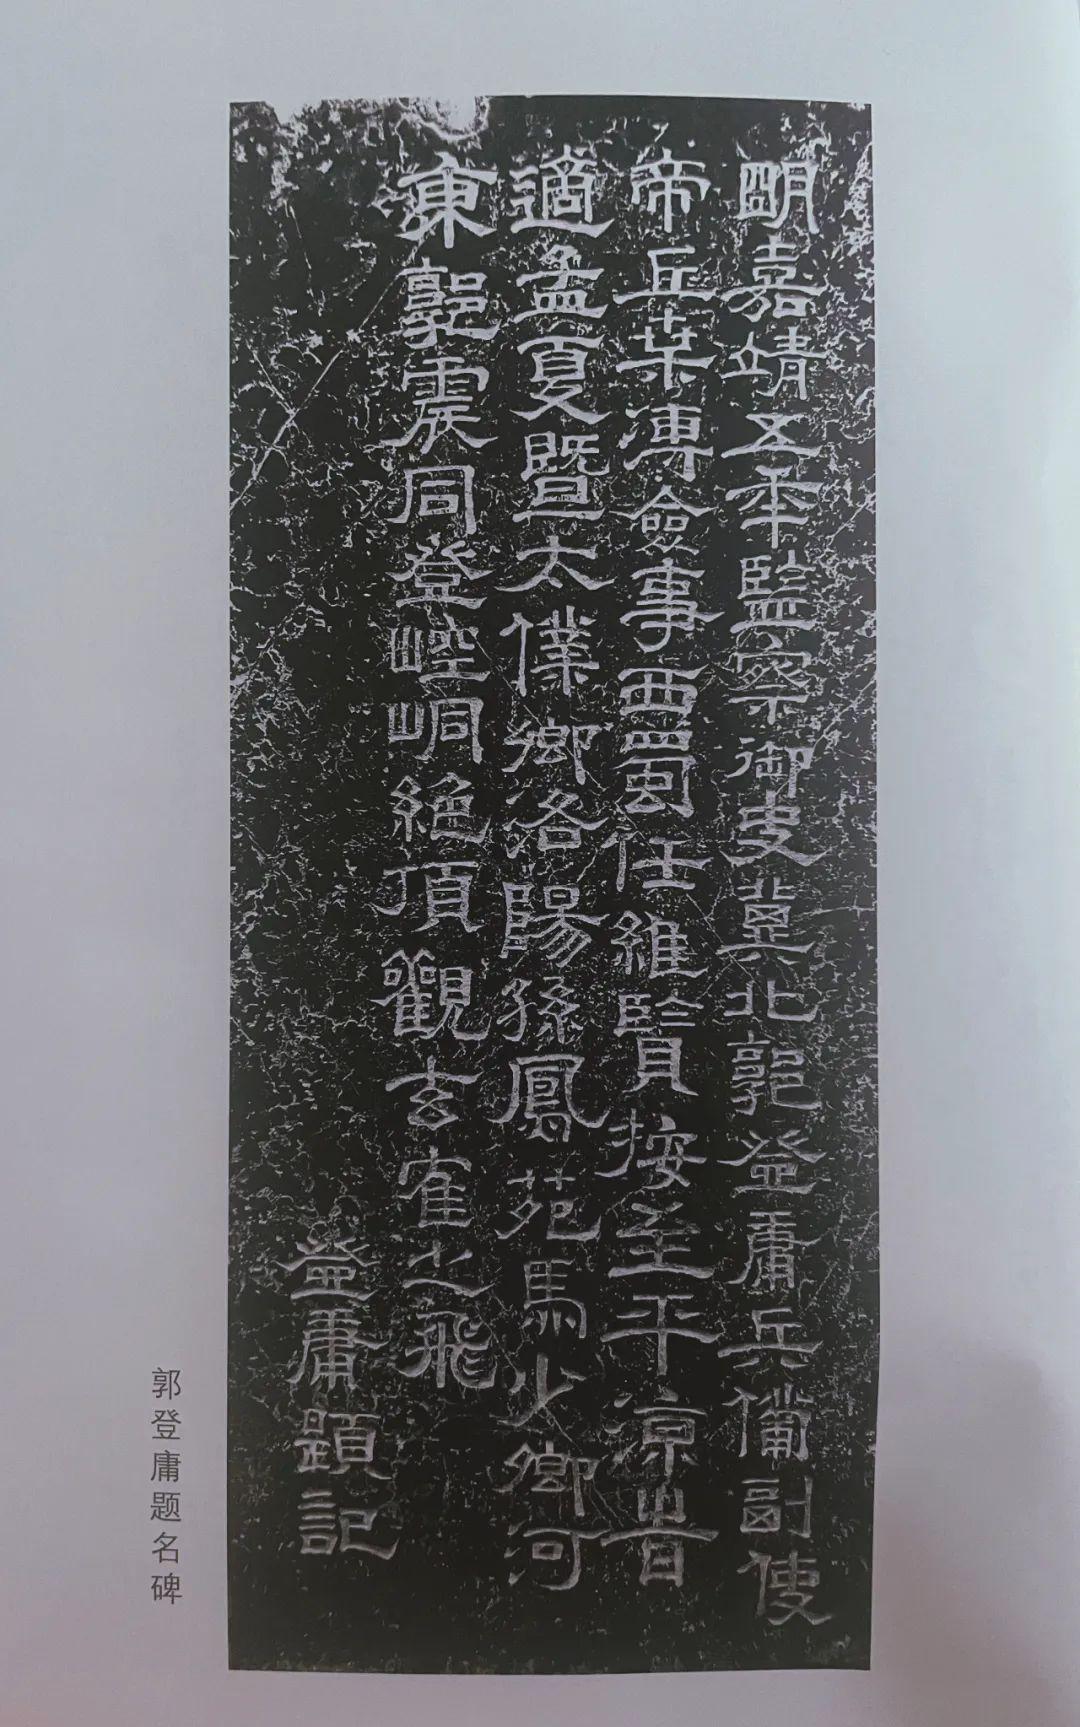 明嘉靖五年監察御史冀北郭登庸兵備副使
帝丘桒溥僉事西蜀任維賢按至平涼旹
適孟夏暨太僕卿洛陽孫鳳苑馬少卿河
東郭震同登崆峒絕頂觀玄隺之飛
登庸題記
郭登庸题名碑